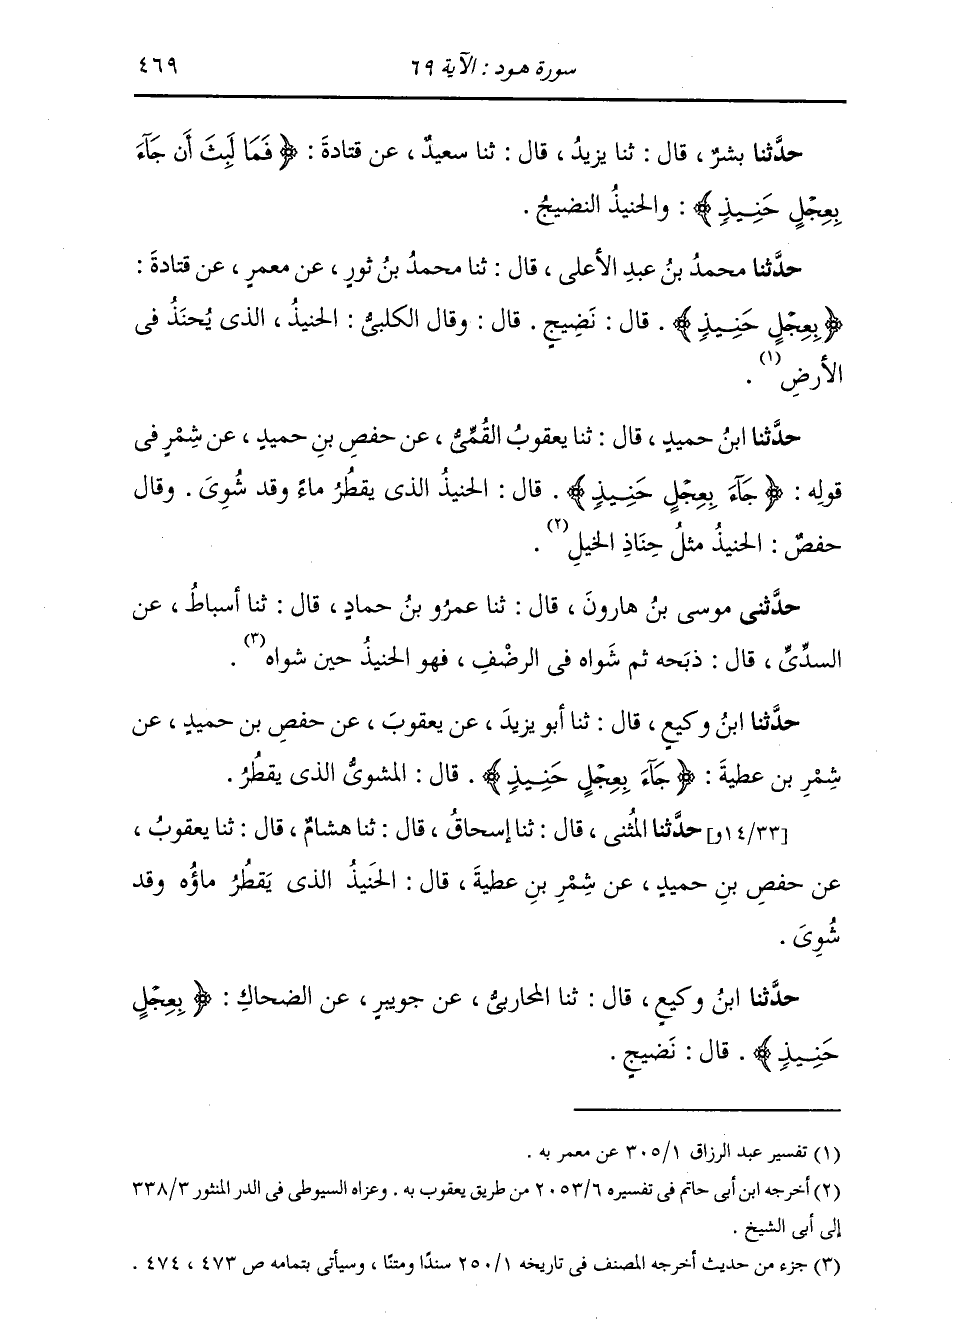 سورة هود : الآية ٦٩ ٤٦٩
حدَّثنا بشرٌ ، قال : ثنا يزيدُ ، قال : ثنا سعيدٌ ، عن قتادةَ : ﴿ فَمَا لَبِثَ أَن جَآءَ
بِعِجْلٍ حَنِيذٍ ﴾ : والحنيذُ النضيجُ .
حدَّثنا محمدُ بنُ عبدِ الأعلى ، قال : ثنا محمدُ بنُ ثورٍ ، عن معمرٍ ، عن قتادةَ :
﴿ بِعِجْلٍ حَنِيذٍ ﴾ . قال : نَضِيجٍ . قال : وقال الكلبىُّ : الحنيذُ ، الذى يُحنَذُ فى
الأرضِ (١) .
حدَّثنا ابنُ حميدٍ ، قال : ثنا يعقوبُ القُمِّىُّ ، عن حفصِ بنِ حميدٍ ، عن شِمْرٍ فى
قولِه : ﴿ جَآءَ بِعِجْلٍ حَنِيذٍ ﴾ . قال : الحنيذُ الذى يقطُرُ ماءً وقد شُوِىَ . وقال
حفصٌ : الحنيذُ مثلُ حِنَاذِ الخيلِ (٢) .
حدَّثنى موسى بنُ هارونَ ، قال : ثنا عمرُو بنُ حمادٍ ، قال : ثنا أسباطُ ، عن
السدِّىِّ ، قال : ذبَحه ثم شَواه فى الرضْفِ ، فهو الحنيذُ حين شواه (٣) .
حدَّثنا ابنُ وكيعٍ ، قال : ثنا أبو يزيدَ ، عن يعقوبَ ، عن حفصِ بن حميدٍ ، عن
شِمْرِ بن عطيةَ : ﴿ جَآءَ بِعِجْلٍ حَنِيذٍ ﴾ . قال : المشوىُّ الذى يقطُرُ .
[١٤/٣٣و] حدَّثنا المُثنى ، قال : ثنا إسحاقُ ، قال : ثنا هشامٌ ، قال : ثنا يعقوبُ ،
عن حفصِ بنِ حميدٍ ، عن شِمْرِ بنِ عطيةَ ، قال : الحَنيذُ الذى يَقطُرُ ماؤُه وقد
شُوِىَ .
حدَّثنا ابنُ وكيعٍ ، قال : ثنا المحاربىُّ ، عن جويبرٍ ، عن الضحاكِ : ﴿ بِعِجْلٍ
حَنِيذٍ ﴾ . قال : نَضيجٍ .
(١) تفسير عبد الرزاق ٣٠٥/١ عن معمر به .
(٢) أخرجه ابن أبى حاتم فى تفسيره ٢٠٥٣/٦ من طريق يعقوب به . وعزاه السيوطى فى الدر المنثور ٣٣٨/٣
إلى أبى الشيخ .
(٣) جزء من حديث أخرجه المصنف فى تاريخه ٢٥٠/١ سندًا ومتنًا ، وسيأتى بتمامه ص ٤٧٣ ، ٤٧٤ .